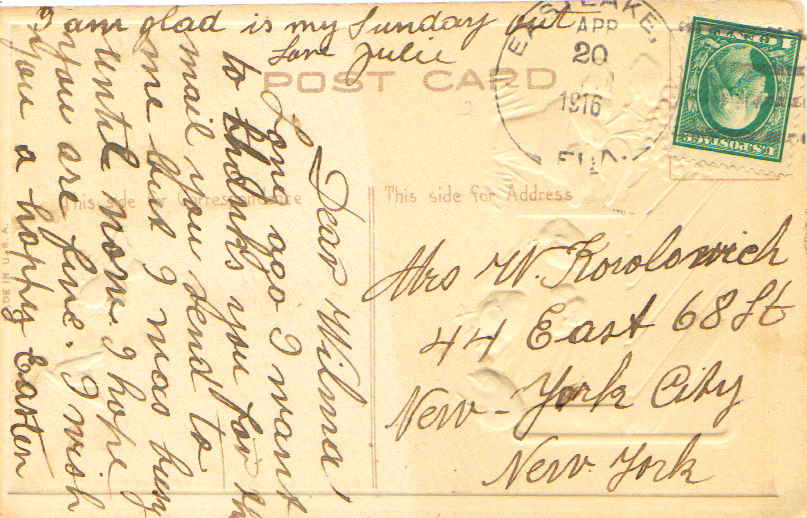 I am glad is my Sunday out
Love Julie
POST CARD
EAST LAKE,
APR
20
1916
U.S. POSTAGE
This side for Correspondence
This side for Address
MADE IN U.S.A.
Dear Wilma!
Long ago I want
to thanks you for the
mail you send to
me but I was busy
until now. I hope
you are fine. I wish
you a happy Easter
Mrs W. Korolowich
44 East 68 St
New-York City
New York